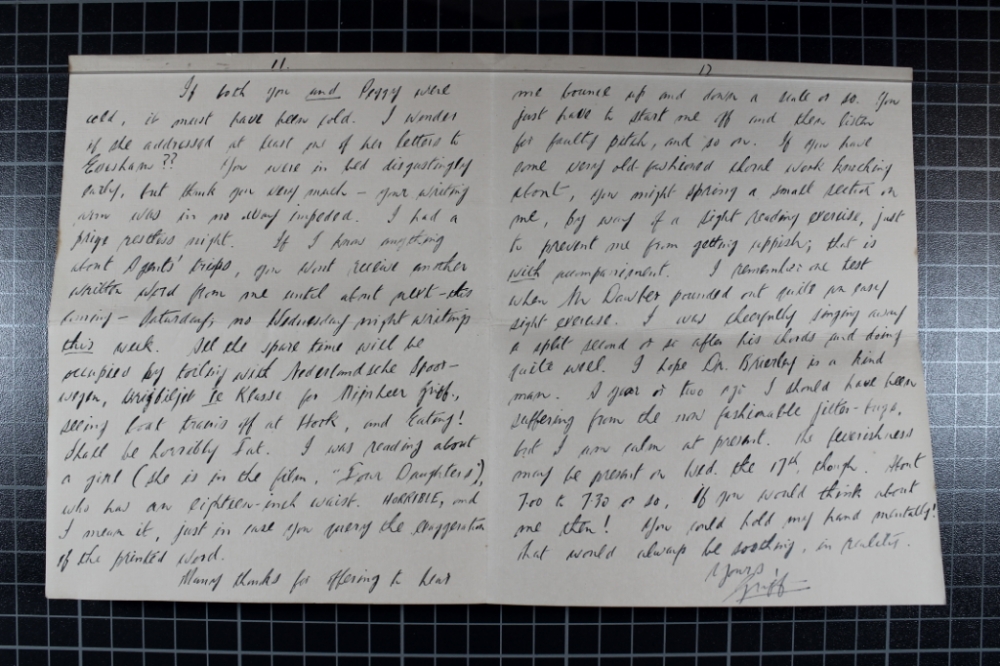 11.
If both you and Peggy were
cold, it must have been cold. I wonder
if she addressed at least one of her letters to
Evesham?? You were in bed disgustingly
early, but thank you very much – your writing
arm was in no way impeded. I had a
prize restless night. If I know anything
about Agents' trips, you wont receive another
written word from me until about next – this
coming – Saturday; no Wednesday night writings
this week. All the spare time will be
occupied by toiling with Nederlandsche Spoor-
wegen, Vrijbiljet Ie Klasse for Mijnheer Griff.,
seeing boat trains off at Hook, and Eating!
Shall be horribly Fat. I was reading about
a girl (she is in the film, "Four Daughters"),
who has an eighteen-inch waist. HORRIBLE, and
I mean it, just in case you query the exaggeration
of the printed word.
Many thanks for offering to hear
12
me bounce up and down a scale or so. You
just have to start me off and then listen
for faulty pitch, and so on. If you have
some very old-fashioned choral work knocking
about, you might spring a small section on
me, by way of a sight reading exercise, just
to prevent me from getting uppish; that is
with accompaniment. I remember one test
when Mr Dawber pounded out quite an easy
sight exercise. I was cheerfully singing away
a split second or so after his chords and doing
quite well. I hope Dr. Brierley is a kind
man. A year or two ago I should have been
suffering from the now fashionable jitter-bugs,
but I am calm at present. The feverishness
may be present on Wed. the 17th, though. About
7.00 to 7.30 or so, If you would think about
me then! You could hold my hand mentally!
that would always be soothing, in reality.
Yours,
Griff